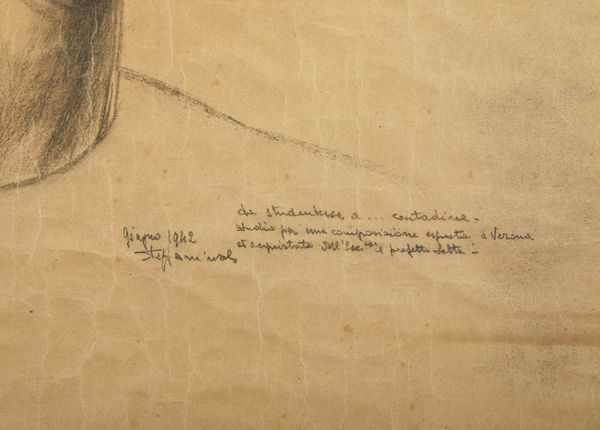 da studentessa a ... contadina -
studio per una composizione esposta a Verona
et acquistata dall'Ecc.za il prefetto
Giugno 1942